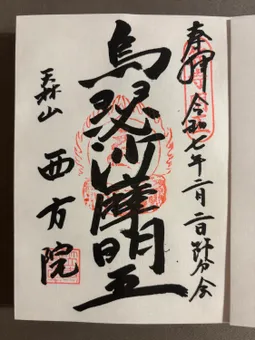 奉拝 令和七年二月二日節分会
烏瑟沙摩明王
山 西方院